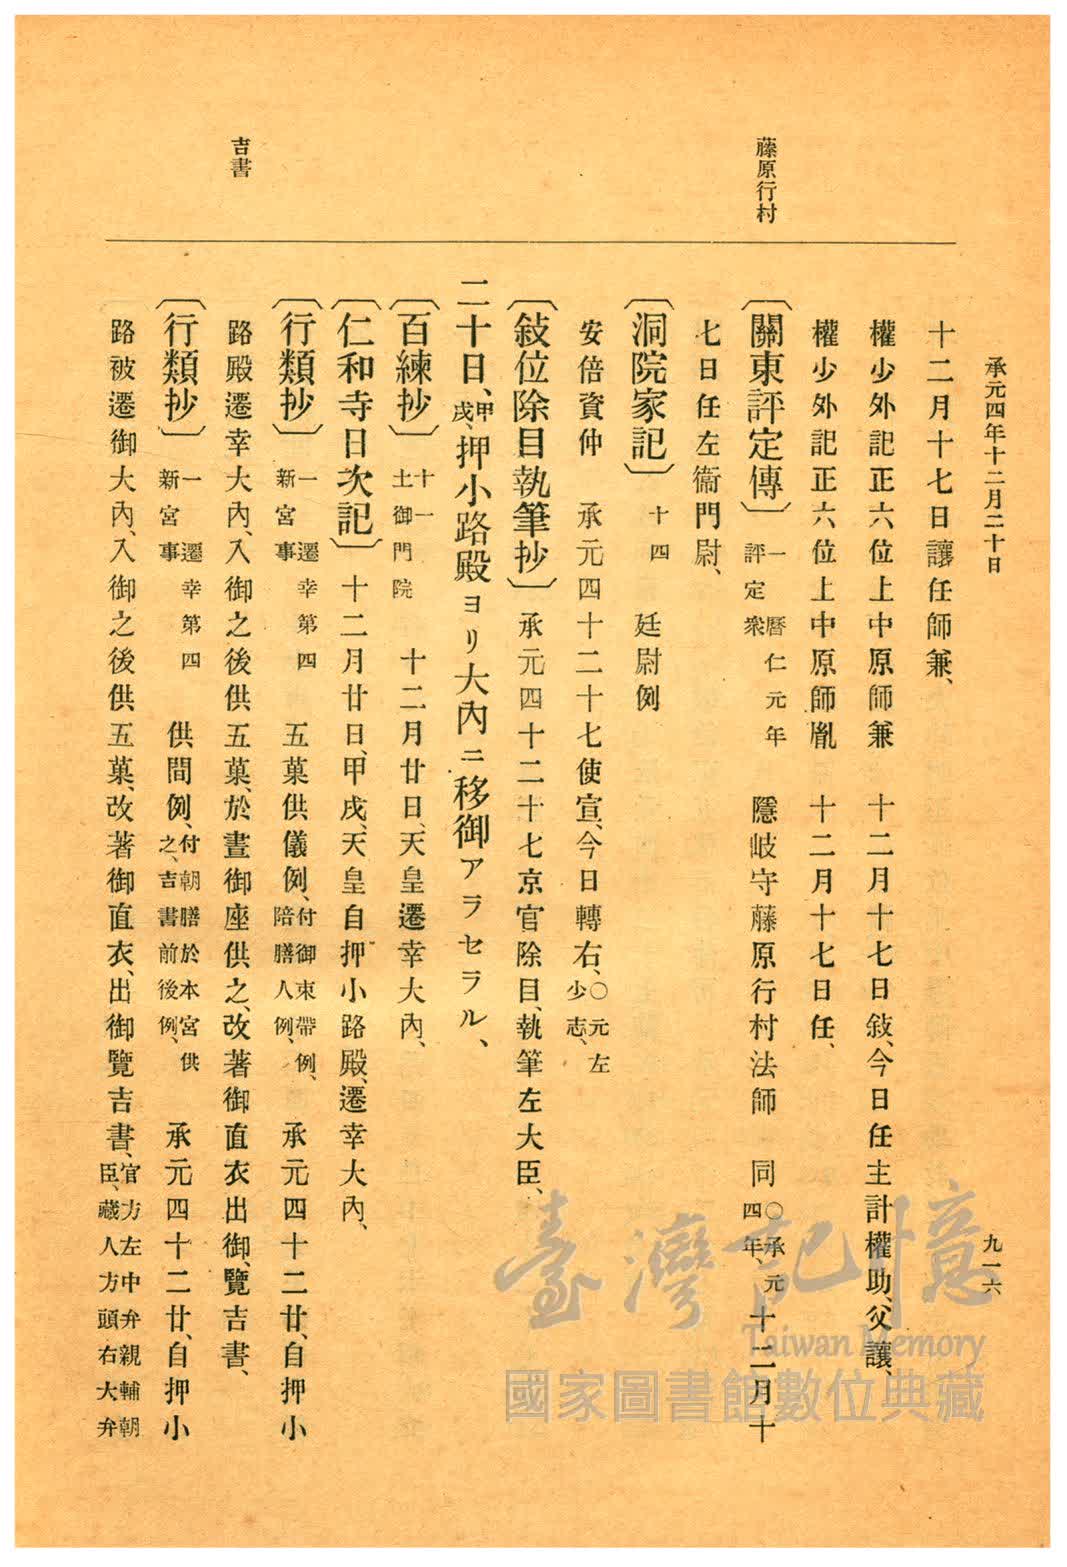 承元四年十二月二十日
九一六
藤原行村
吉書
十二月十七日讓任師兼、
權少外記正六位上中原師兼　十二月十七日敍、今日任主計權助、父讓、
權少外記正六位上中原師胤　十二月十七日任、
〔關東評定傳〕一　曆仁元年評定衆　隱岐守藤原行村法師　同〇承元四年、十二月十
七日任左衞門尉、
〔洞院家記〕十四　廷尉例
安倍資仲　承元四十二十七使宣、今日轉右、〇元左少志、
〔敍位除目執筆抄〕承元四十二十七京官除目、執筆左大臣、
二十日、甲戌、押小路殿ヨリ大內ニ移御アラセラル、
〔百練抄〕十一土御門院　十二月廿日、天皇遷幸大內、
〔仁和寺日次記〕十二月廿日、甲戌、天皇自押小路殿、遷幸大內、
〔行類抄〕一　遷幸第四新宮事　五菓供儀例、付御束帶例、陪膳人例、　承元四十二廿、自押小
路殿遷幸大內、入御之後供五菓、於晝御座供之、改著御直衣出御、覽吉書、
〔行類抄〕一　遷幸第四新宮事　供間例、付朝膳於本宮供之、吉書前後例、　承元四十二廿、自押小
路被遷御大內、入御之後供五菓、改著御直衣、出御覽吉書、官方左中弁親輔朝臣、藏人方頭右大弁
臺灣記憶
Taiwan Memory
國家圖書館數位典藏